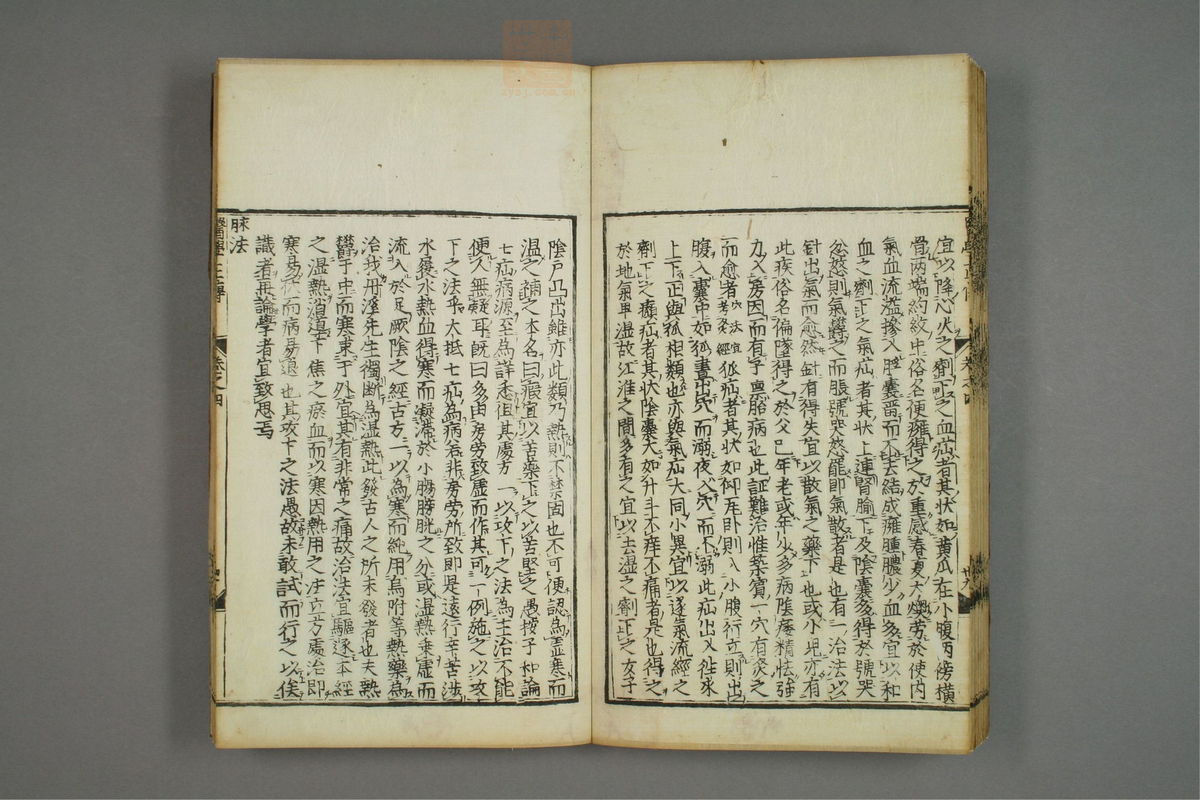 宜以降心火之劑下之血疝者其狀如黃瓜在小腹兩傍橫
骨兩端約紋中俗名便癰得之於重感春夏大燠勞於使內
氣血流溢滲入脬囊畱而不去結成癰腫膿少血多宜以和
血之劑下之氣疝者其狀上連腎腧下及陰囊多得於號哭
忿怒則氣鬱之而脹號哭怒罷即氣散者是也有一治法以
針出氣而愈然針有得失宜以散氣之藥下也或小児亦有
此疾俗名偏墜得之於父已年老或年少多病陰痿精怯强
力入房因而有子稟胎病也此証難治惟築賓一穴有灸之
而愈者穴法宜考灸經狐疝者其状如仰瓦卧則入小腹行立則出
腹入囊中如狐晝出穴而溺夜入穴而不溺此疝出入往來
上下正與狐相類也亦與氣疝大同小異宜以逐氣流經之
劑下之㿗疝者其狀陰囊大如升斗不痒不痛者是也得之
於地氣卑湿故江淮之間多有之宜以去湿之劑下之女子
陰戶凸出雖亦此類乃熱則不禁固也不可便認為虛寒而
温之補之本名曰瘕宜以苦藥下之以苦堅之愚按子和論
七疝病源至為詳悉但其處方一以攻下之法為主治不能
使人無疑耳既曰多由房劳致虛而作其可一例施之以攻
下之法乎大抵七疝為病若非房劳所致即是遠行辛苦涉
水履冰熱血得寒而凝滯於小腸膀胱之分或湿熱乗虛而
流入於足厥陰之經古方一以為寒而純用烏附等熱藥為
治我丹溪先生獨断為湿熱此發古人之所未發者也夫熱
鬱于中而寒束于外宜其有非常之痛故治法宜驅逐本經
之湿熱消導下焦之瘀血而以寒因熱用之法立方處治即
寒易伏而病易退也其攻下之法愚故未敢試而行之以俟
識者再論學者宜致思焉
脉法
醫學正傳
卷之四